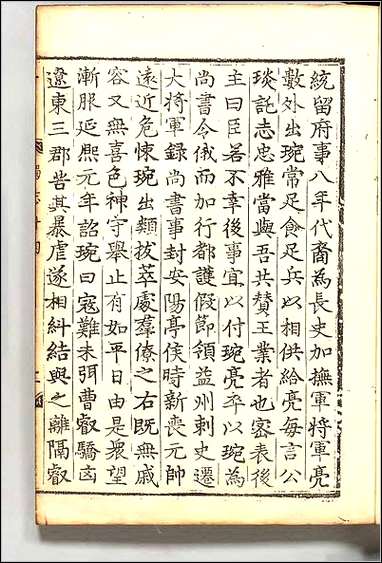 統留府事八年代裔為長史加撫軍將軍亮
數外出琬常足食足兵以相供給亮每言公
琰託志忠雅當與吾共贊王業者也密表後
主曰臣若不幸後事宜以付琬亮卒以琬為
尚書令俄而加行都護假節領益州刺史遷
大將軍録尚書事封安陽亭侯時新喪元帥
遠近危悚琬出類拔萃處羣僚之右既無戚
容又無喜色神守舉止有如平日由是衆望
漸服延熙元年詔琬曰寇難未弭曹叡驕凶
遼東三郡苦其暴虐遂相糾結與之離隔叡
蜀志十四